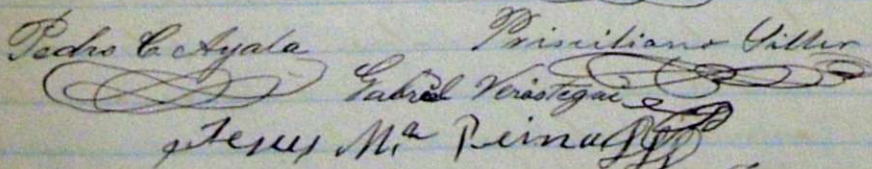 Pedro C. Ayala Prisciliano Siller
Gabriel Verástegui
Jesus Mª Reina